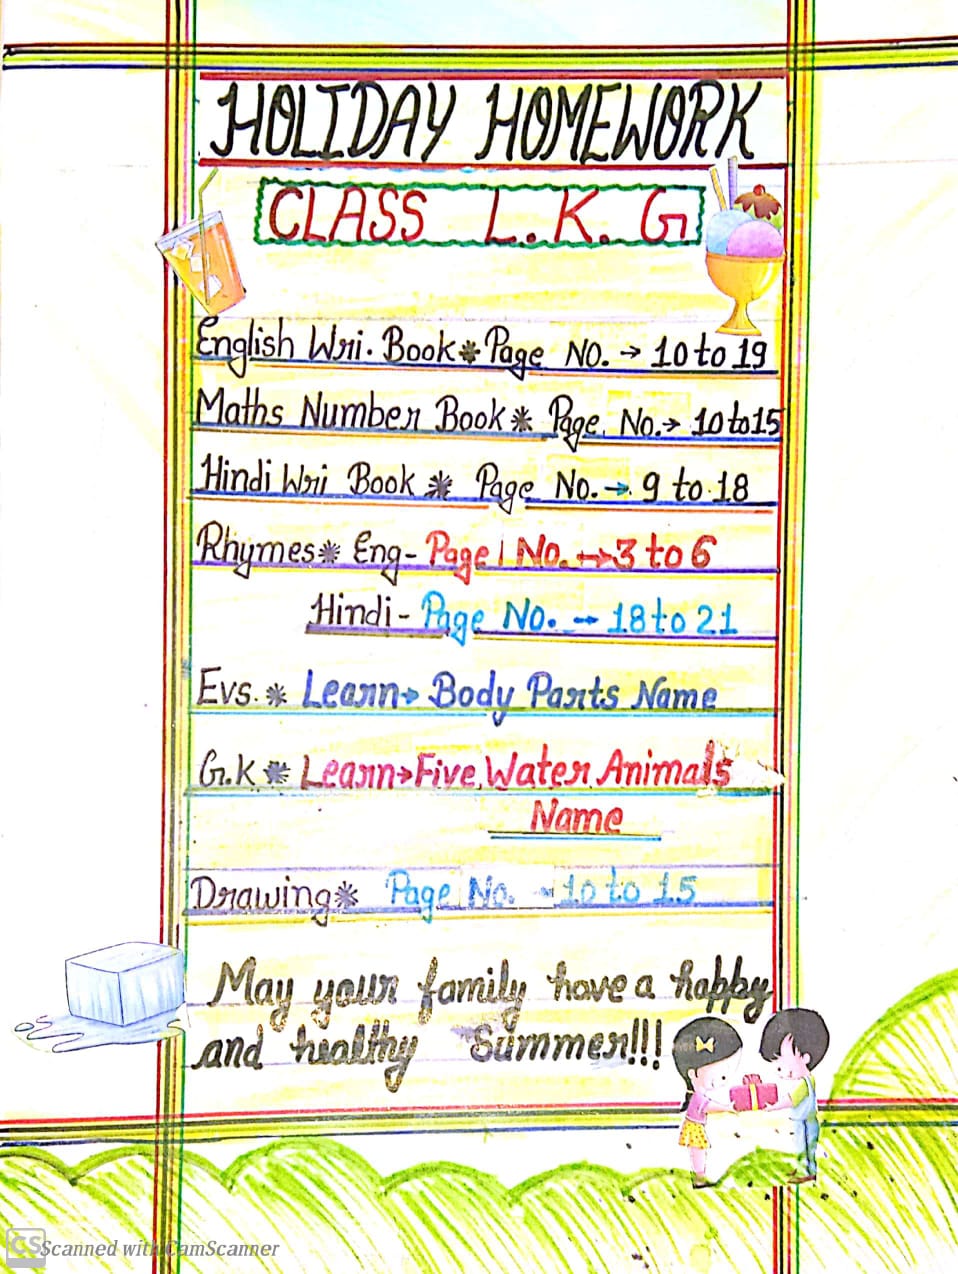 HOLIDAY HOMEWORK
CLASS L.K.G
English Wri. Book * Page No. → 10 to 19
Maths Number Book * Page No. → 10 to 15
Hindi Wri Book * Page No. → 9 to 18
Rhymes * Eng - Page No. → 3 to 6
Hindi - Page No. → 18 to 21
Evs. * Learn → Body Parts Name
G.K * Learn → Five Water Animals
Name
Drawing * Page No. → 10 to 15
May your family have a happy
and healthy Summer!!!
CS Scanned with CamScanner